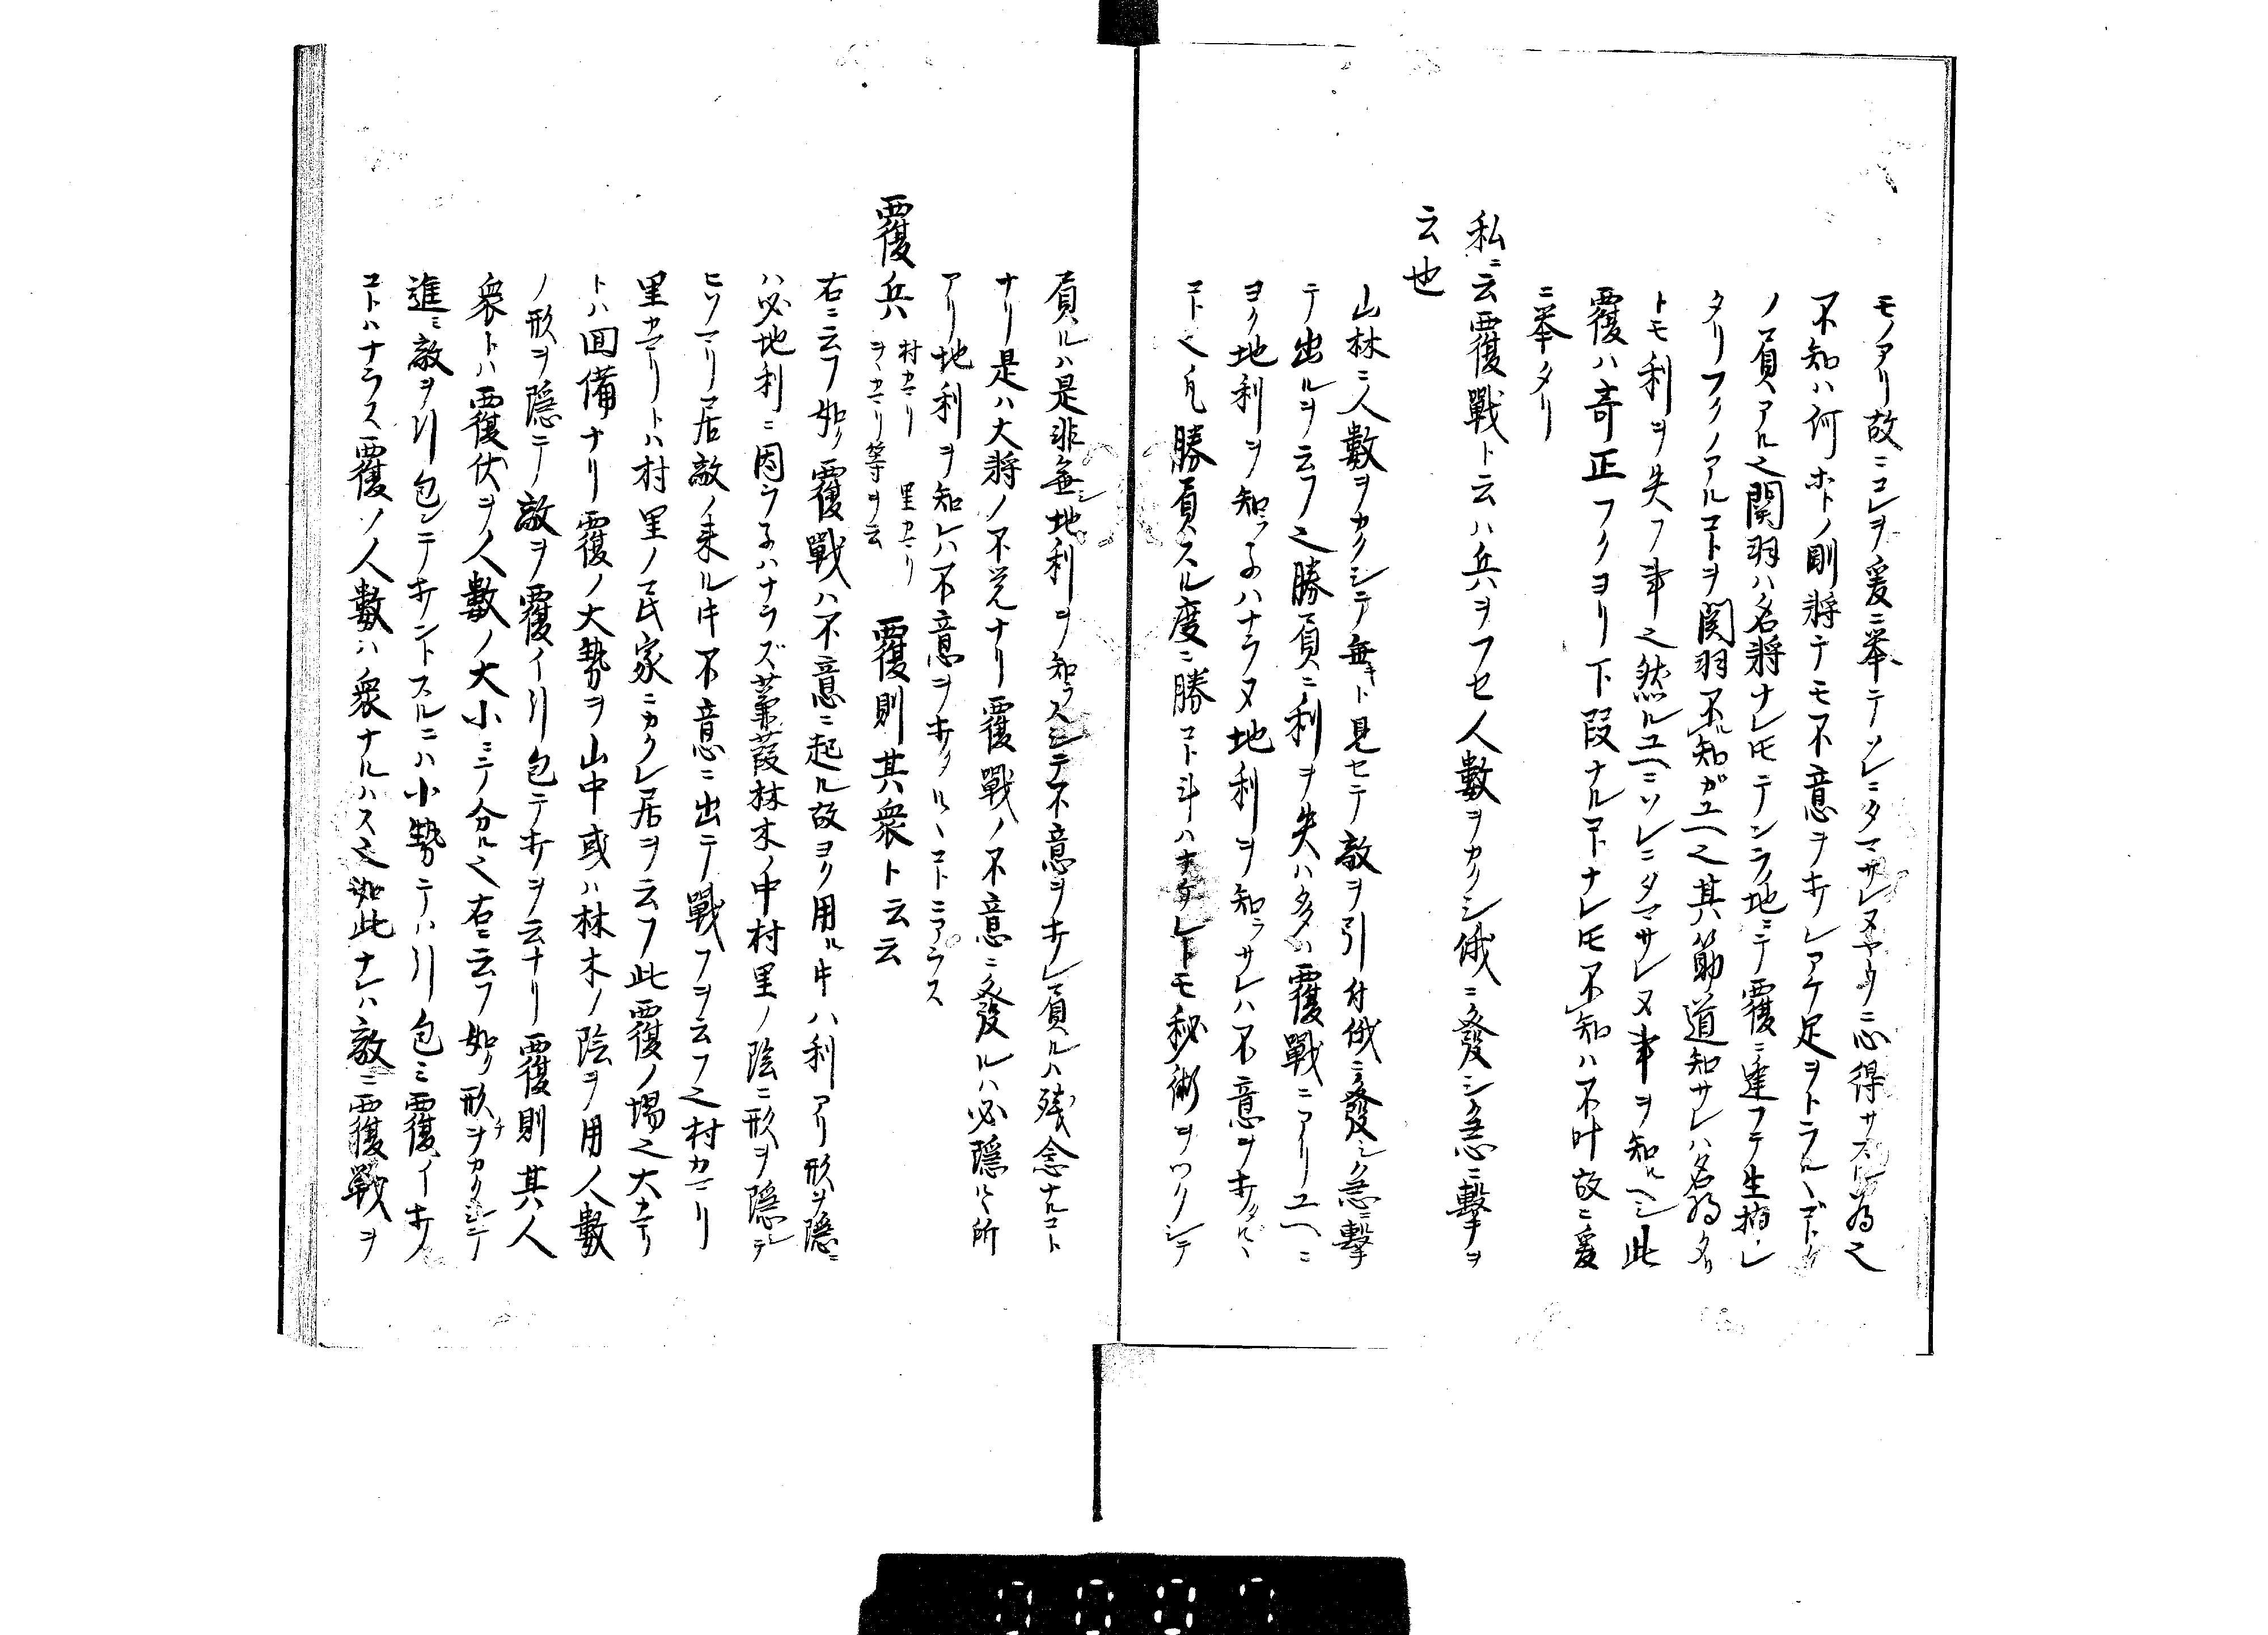 モノアリ故ニコレヲ爰ニ挙テソレニタマサレヌヤウニ心得サスル為也
不知ハ何ホトノ剛将テモ不意ヲ打レアケ足ヲトラルヽゴトク
ノ負アル也関羽ハ名将ナレ𪜈テンラノ地ニテ覆ニ逢フテ生捕レ
タリフクノアルコトヲ関羽不ル知ガユヘ也其筋道知サレハ名将タリ
トモ利ヲ失フ事也然ルユヘニソレニタマサレヌ事ヲ知ルヘシ此
覆ハ奇正フクヨリ下段ナルコトナレ𪜈不知ハ不叶故ニ爰
ニ挙タリ
私ニ云覆戰ト云ハ兵ヲフセ人數ヲカクシ俄ニ發シ急ニ擊ヲ
云也
山林ニ人數ヲカクシテ無キト見セテ敵ヲ引付俄ニ發シ急ニ擊
テ出ルヲ云フ也勝負ニ利ヲ失ハ多ハ覆戰ニアリユヘニ
ヨク地利ヲ知ラ子ハナラヌ地利ヲ知ラサレハ不意ヲ打タルヽ
コト也凡勝負スル度ニ勝コト斗ハナケレトモ秘術ヲツクシテ
負ルハ是非無シ地利ヲ知ラスシテ不意ヲ打レ負ルハ残念ナルコト
ナリ是ハ大将ノ不覚ナリ覆戰ノ不意ニ發ルハ必隱ルヽ所
アリ地利ヲ知レハ不意ヲ打タルヽコトニアラス
覆兵 村カマリ 里カマリ ヲヽカマリ等ヲ云 覆則其衆ト云云
右ニ云フ如ク覆戰ハ不意ニ起ル故ヨク用ルキハ利アリ形ヲ隱ニ
ハ必地利ニ因ラ子ハナラズ蒹葭林木ノ中村里ノ陰ニ形ヲ隱シテ
ヒソマリ居敵ノ来ルキ不意ニ出テ戰フヲ云フ也村カマリ
里カマリトハ村里ノ民家ニカクレ居ヲ云フ此覆ノ場也大カマリ
トハ囬備ナリ覆ノ大勢ヲ山中或ハ林木ノ陰ヲ用人數
ノ形ヲ隱テ敵ヲ覆イ引包テ打ヲ云ナリ覆則其人
衆トハ覆伏ヲノ人數ノ大小ニテ分ル也右ニ云フ如ク形チヲカクシテ
進ミ敵ヲ引包ンテ打ントスルニハ小勢テハ引包ミ覆イ打ノ
コトハナラス覆ソノ人數ハ衆ナルハス也如此ナレハ敵ニ覆戰ヲ